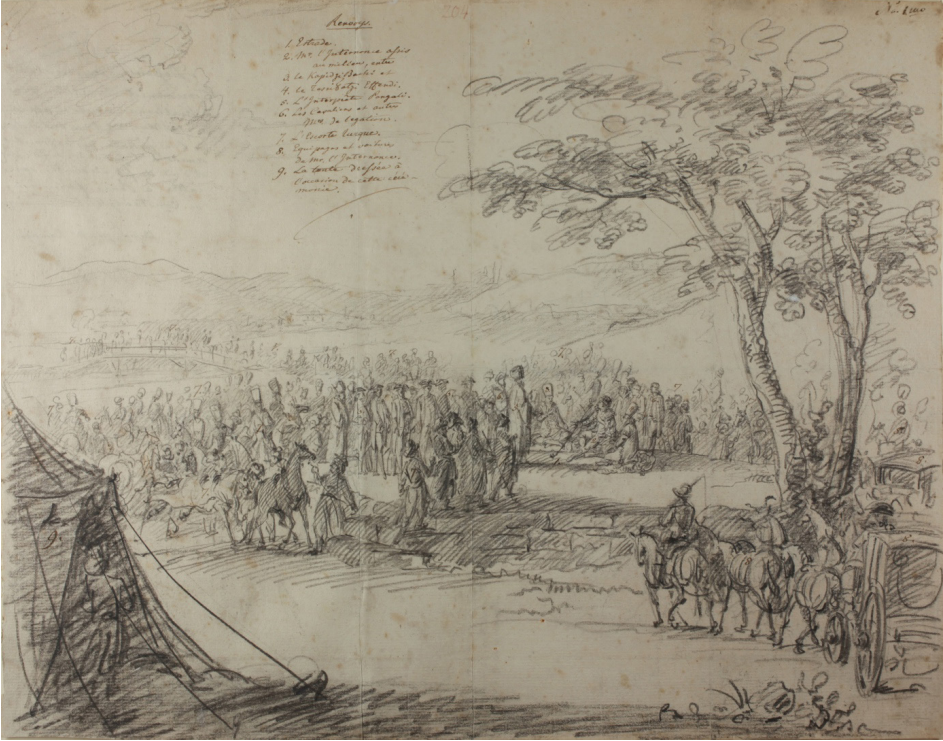 Renvoys.
1. Estrade.
2. Mr. l'Internonce assis
au milieu, entre
3. le Kapidgi Bachi et
4. le Effendi.
5. L'Interprete
6. Les Cavaliers et autres
Mrs. de legation.
7. L'Escorte turque.
8. Equipages et voiture
de Mr. l'Internonce.
9. La tente dressée à
l'occasion de cette céré-
monie.
204
9.